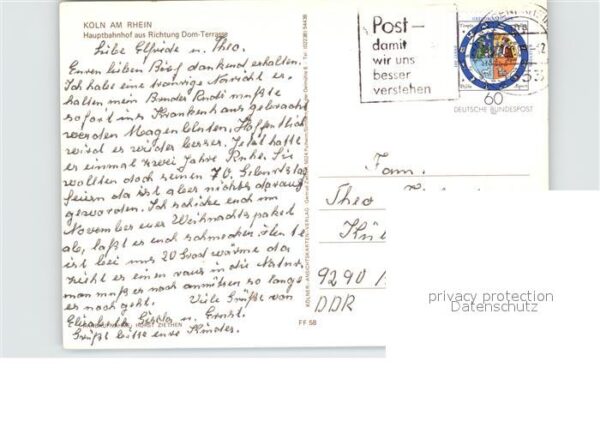 KÖLN AM RHEIN
Hauptbahnhof aus Richtung Dom-Terrasse
Liebe Elfriede u. Theo.
Euren lieben Brief dankend erhalten.
Ich habe eine traurige Nachricht er-
halten, mein Bruder Rudi mußte
sofort ins Krankenhaus gebracht
werden Magenbluten. Hoffentlich
wird es wieder besser. Jetzt hatte
er einmal zwei Jahre Ruhe. Sie
wollten doch seinen 70. Geburtstag
feiern da ist aber nichts daraus
geworden. Ich schicke euch im
November euer Weihnachtspaket
ab, laßt es euch schmecken.
ist bei uns 20 Grad wärme da
zieht es einen raus in die Natur
man muß es noch so lange
es noch geht. Viele Grüße von
Elisabeth u. Ernst.
Grüßt bitte eure Kinder.
HORST ZIETHEN
FF 58
KÖLNER ANSICHTSKARTENVERLAG
Post -
damit
wir uns
besser
verstehen
60
DEUTSCHE BUNDESPOST
Fam.
Theo
9290
DDR
privacy protection
Datenschutz